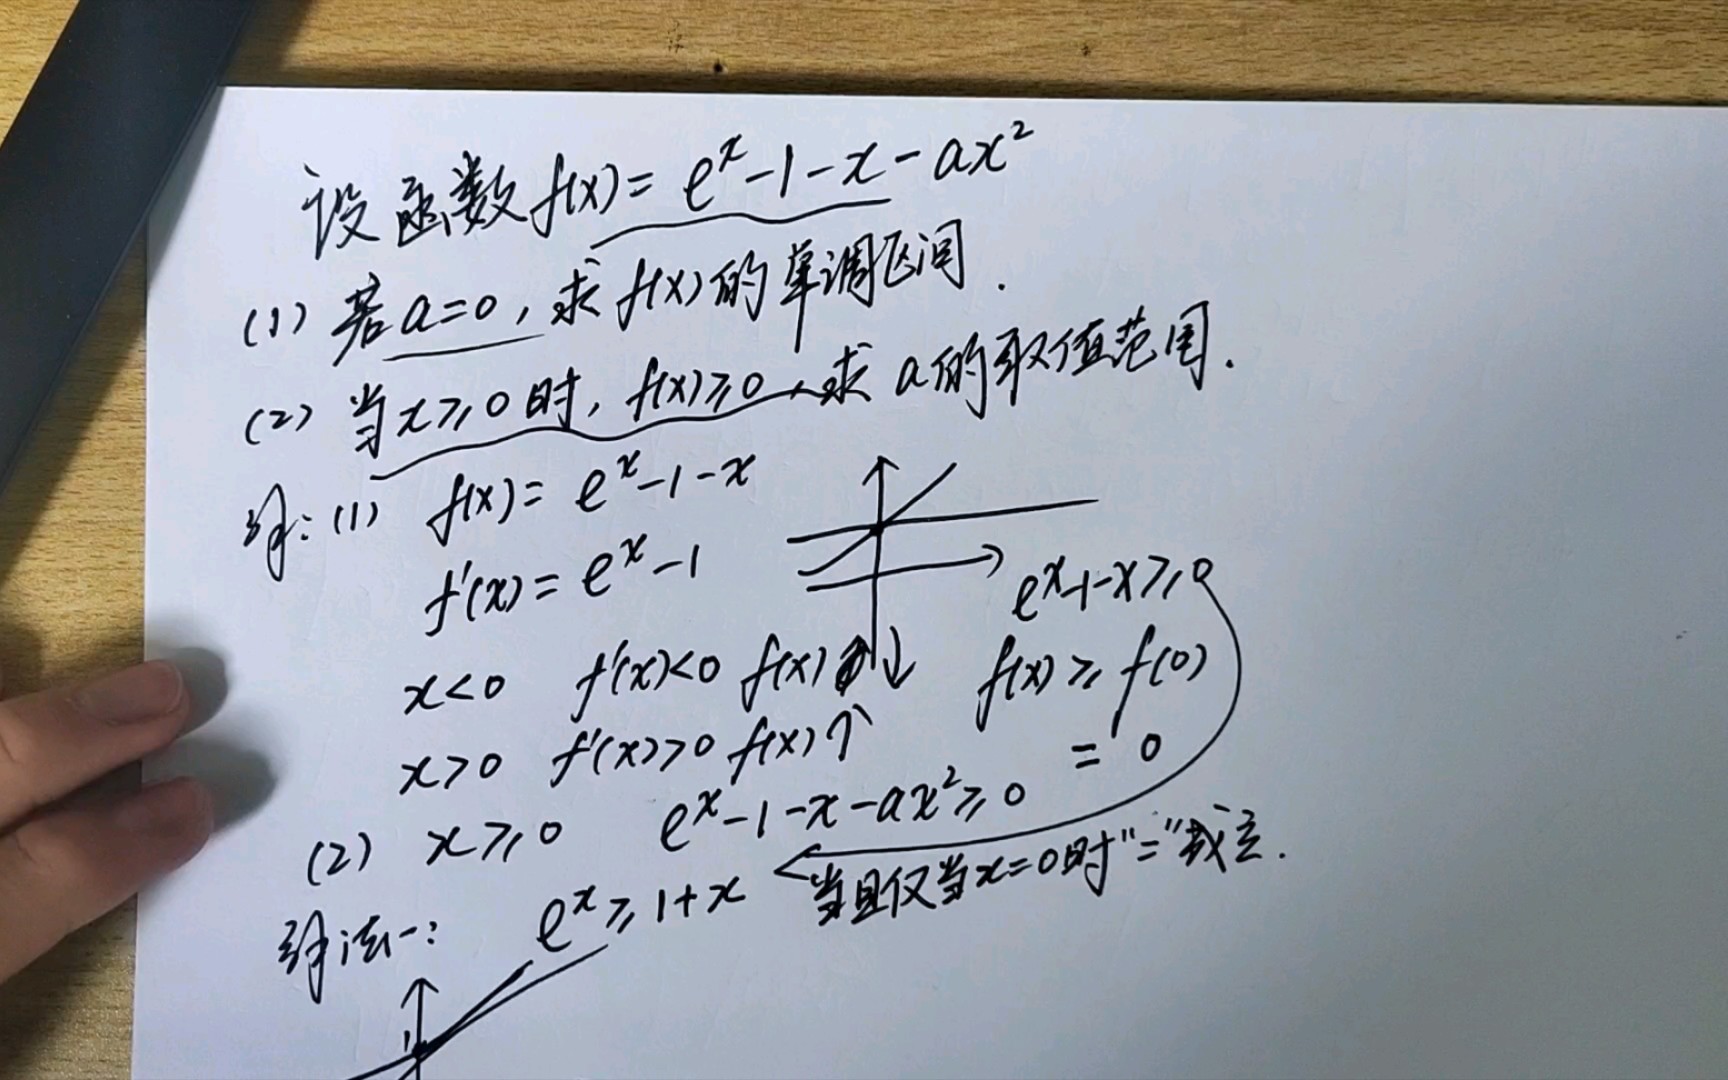 设函数f(x)=e^x-1-x-ax²
(1) 若a=0,求f(x)的单调区间.
(2) 当x≥0时,f(x)≥0,求a的取值范围.
解:(1) f(x)=e^x-1-x
f'(x)=e^x-1
e^x-1-x≥0
x<0 f'(x)<0 f(x)↓ f(x)≥f(0)
x>0 f'(x)>0 f(x)↑ =0
(2) x≥0 e^x-1-x-ax²≥0
解法一: e^x≥1+x 当且仅当x=0时"="成立.
1